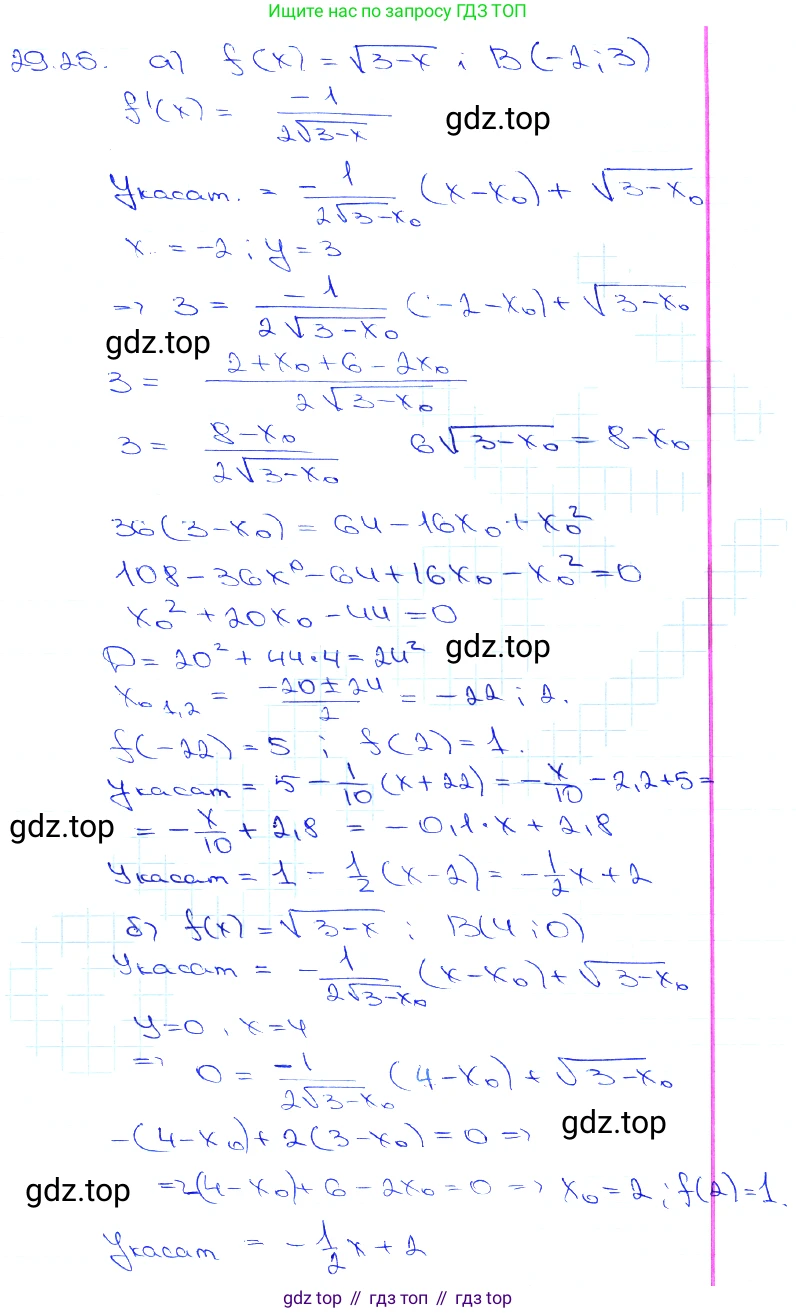 Ищите нас по запросу ГДЗ ТОП
29.25. а) f(x) = √(3-x) ; B(-2;3)
f'(x) = -1/(2√(3-x))
gdz.top
Укасат. = -1/(2√(3-x₀)) (x-x₀) + √(3-x₀)
x = -2 ; y = 3
=> 3 = -1/(2√(3-x₀)) (-2-x₀) + √(3-x₀)
gdz.top
3 = (2+x₀+6-2x₀)/(2√(3-x₀))
3 = (8-x₀)/(2√(3-x₀)) 6√(3-x₀) = 8-x₀
36(3-x₀) = 64-16x₀+x₀²
108-36x⁰-64+16x₀-x₀²=0
x₀²+20x₀-44=0
D=20²+44·4=24²
gdz.top
x₀ ₁,₂ = (-20±24)/2 = -22 ; 2.
f(-22)=5 ; f(2)=1.
Укасат = 5 - 1/10 (x+22) = -x/10 - 2,2+5=
gdz.top
= -x/10 + 2,8 = -0,1·x+2,8
Укасат = 1 - 1/2 (x-2) = -1/2 x+2
б) f(x) = √(3-x) ; B(4;0)
Укасат = -1/(2√(3-x₀)) (x-x₀) + √(3-x₀)
y=0, x=4
=> 0 = -1/(2√(3-x₀)) (4-x₀) + √(3-x₀)
-(4-x₀)+2(3-x₀)=0 =>
gdz.top
=>-(4-x₀)+6-2x₀=0 => x₀=2 ; f(2)=1.
gdz.top
Укасат = -1/2 x+2
gdz.top // гдз топ // gdz top